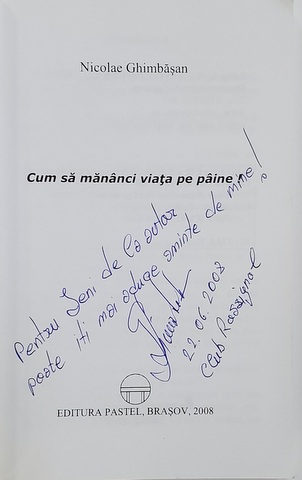 Nicolae Ghimbăşan
Cum să mănânci viaţa pe pâine
Pentru Jeni de la autor
poate îti mai aduge aminte de mine!
22.06.2008
Club Rossignol
EDITURA PASTEL, BRAŞOV, 2008